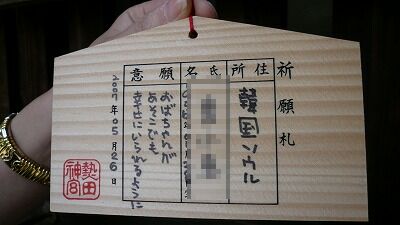 祈願札
住所
韓国ソウル
氏名
願意
おばちゃんが
あそこでも
幸せにいられるように
2007年05月26日
熱田
神宮